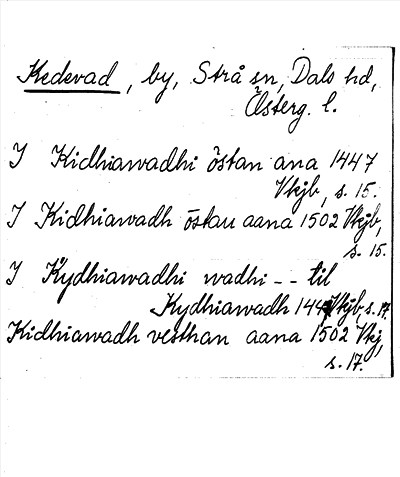 Kedevad, by, Strå sn, Dals hd,
Österg. l.
I Kidhiawadhi östan ana 1447
Vkjb, s. 15.
I Kidhiawadh östan aana 1502 Vkjb,
s. 15.
I Kydhiawadhi wadhi -- til
Kydhiawadh 1447 Vkjb s. 17.
Kidhiawadh vesthan aana 1502 Vkj,
s. 17.